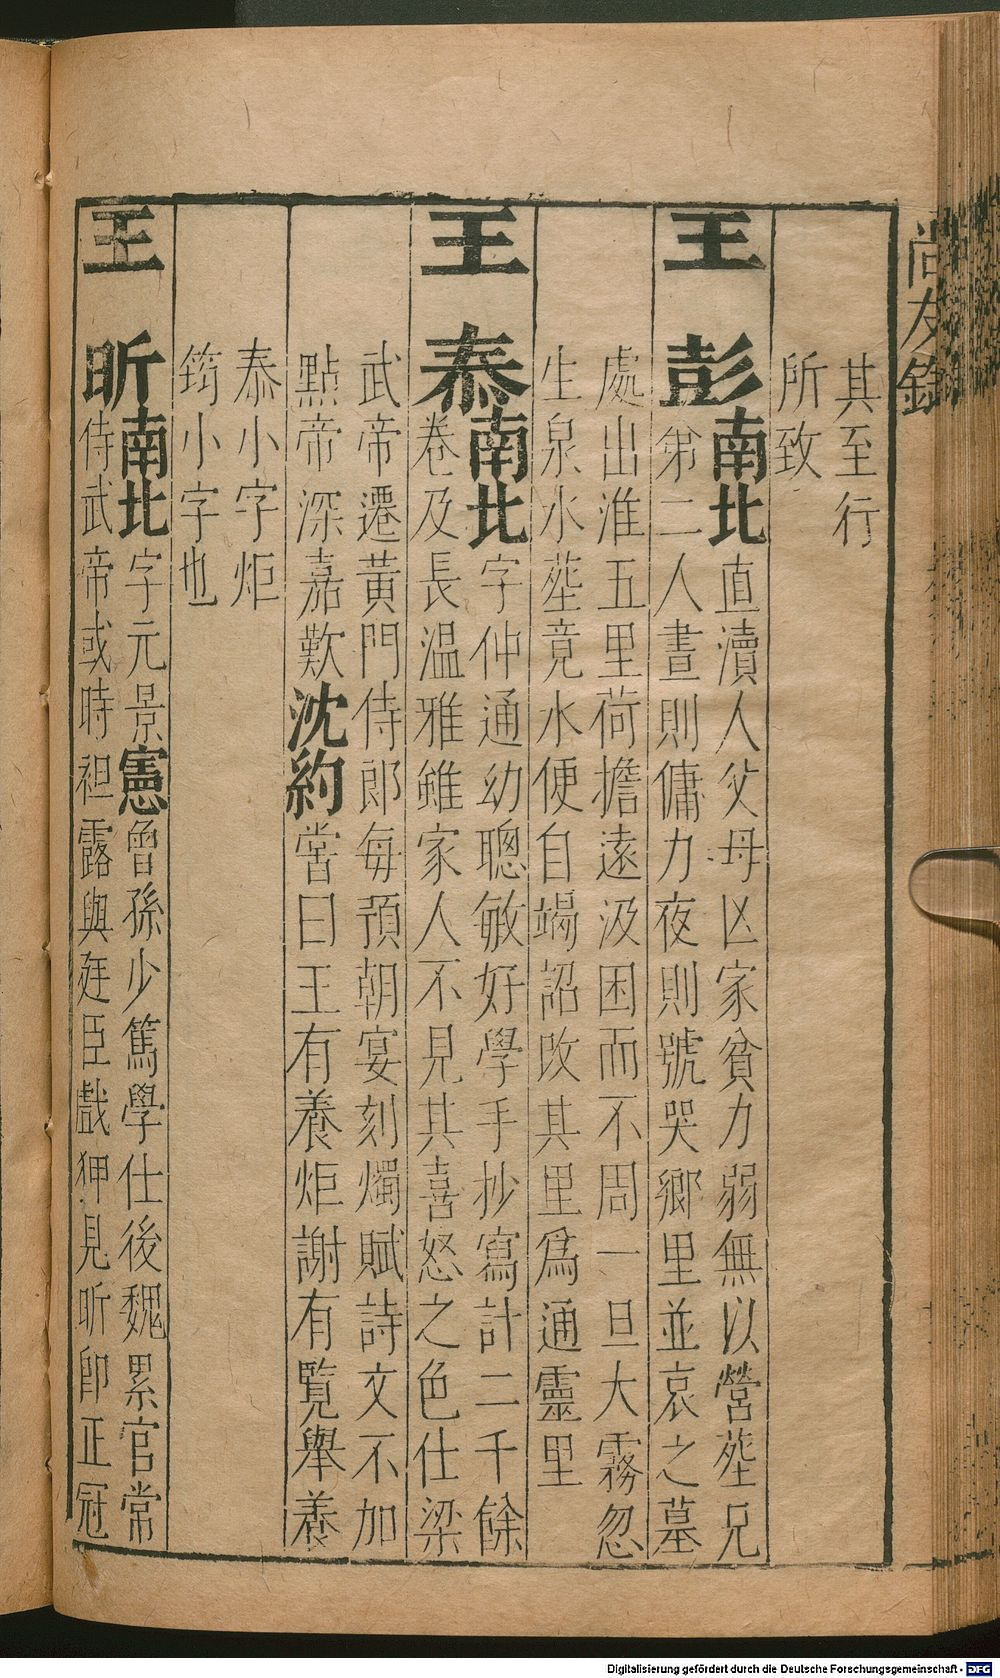 尚友錄
其至行
所致
王彭南北直瀆人父母凶家貧力弱無以營塟兄
第二人晝則傭力夜則號哭鄉里並哀之墓
處出淮五里荷擔遠汲困而不周一旦大霧忽
生泉水塟竟水便自竭詔改其里爲通靈里
王泰南北字仲通幼聰敏好學手抄寫計二千餘
卷及長温雅雖家人不見其喜怒之色仕梁
武帝遷黃門侍郎每預朝宴刻燭賦詩文不加
點帝深嘉歎沈約嘗曰王有養炬謝有覧舉養
泰小字炬
筠小字也
王昕南北字元景憲曾孫少篤學仕後魏累官常
侍武帝或時袒露與廷臣戲狎見昕卽正冠
Digitalisierung gefördert durch die Deutsche Forschungsgemeinschaft - DFG